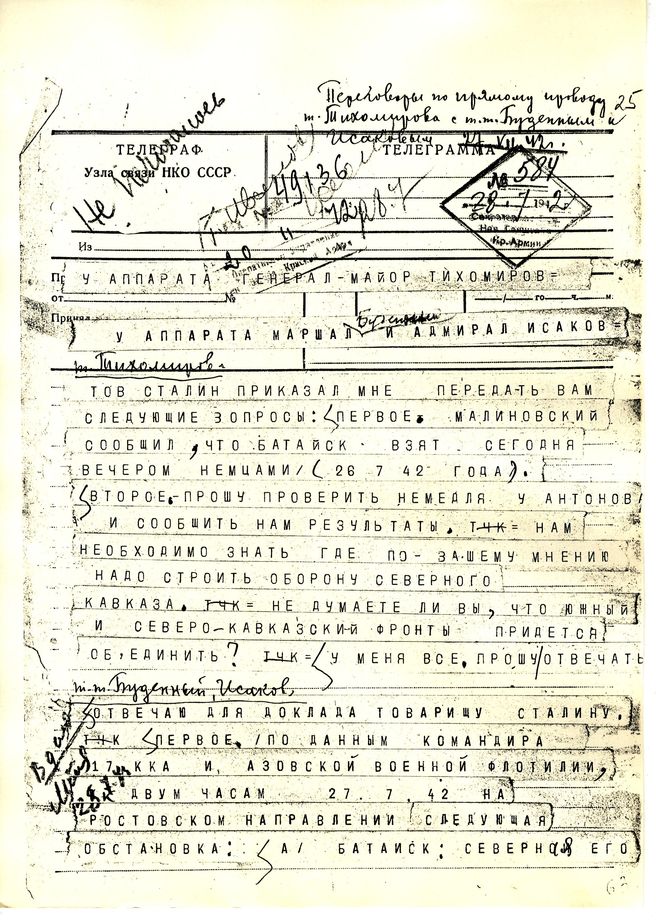 Переговоры по прямому проводу 25
т. Тихомирова с т.т. Буденным и
Исаковым 27.VII.42г.
ТЕЛЕГРАФ
ТЕЛЕГРАММА
Узла связи НКО СССР
№ 584
28. 7. 194 2
49136
Из
У АППАРАТА ГЕНЕРАЛ-МАЙОР ТИХОМИРОВ=
от №
го ч. м.
Принял
У АППАРАТА МАРШАЛ Буденный И АДМИРАЛ ИСАКОВ=
т. Тихомиров=
ТОВ СТАЛИН ПРИКАЗАЛ МНЕ ПЕРЕДАТЬ ВАМ
СЛЕДУЮЩИЕ ЗОПРОСЫ: ПЕРВОЕ. МАЛИНОВСКИЙ
СООБЩИЛ, ЧТО БАТАЙСК ВЗЯТ СЕГОДНЯ
ВЕЧЕРОМ НЕМЦАМИ/( 26 7 42 ГОДА).
ВТОРОЕ-ПРОШУ ПРОВЕРИТЬ НЕМЕДЛЯ У АНТОНОВА
И СООБЩИТЬ НАМ РЕЗУЛЬТАТЫ. ТЧК= НАМ
НЕОБХОДИМО ЗНАТЬ ГДЕ ПО-ЗАШЕМУ МНЕНИЮ
НАДО СТРОИТЬ ОБОРОНУ СЕВЕРНОГО
КАВКАЗА. ТЧК= НЕ ДУМАЕТЕ ЛИ ВЫ, ЧТО ЮЖНЫЙ
И СЕВЕРО-КАВКАЗСКИЙ ФРОНТЫ ПРИДЕТСЯ
ОБ,ЕДИНИТЬ? ТЧК= У МЕНЯ ВСЕ, ПРОШУ/ОТВЕЧАТЬ
т.т. Буденный, Исаков
ОТВЕЧАЮ ДЛЯ ДОКЛАДА ТОВАРИЩУ СТАЛИНУ.
ТЧК ПЕРВОЕ. /ПО ДАННЫМ КОМАНДИРА
17 ККА И, АЗОВСКОЙ ВОЕННОЙ ФЛОТИЛИИ,
ДВУМ ЧАСАМ 27. 7. 42 НА
РОСТОВСКОМ НАПРАВЛЕНИИ СЛЕДУЮЩАЯ
ОБСТАНОВКА: А/ БАТАЙСК: СЕВЕРН(Я ЕГО